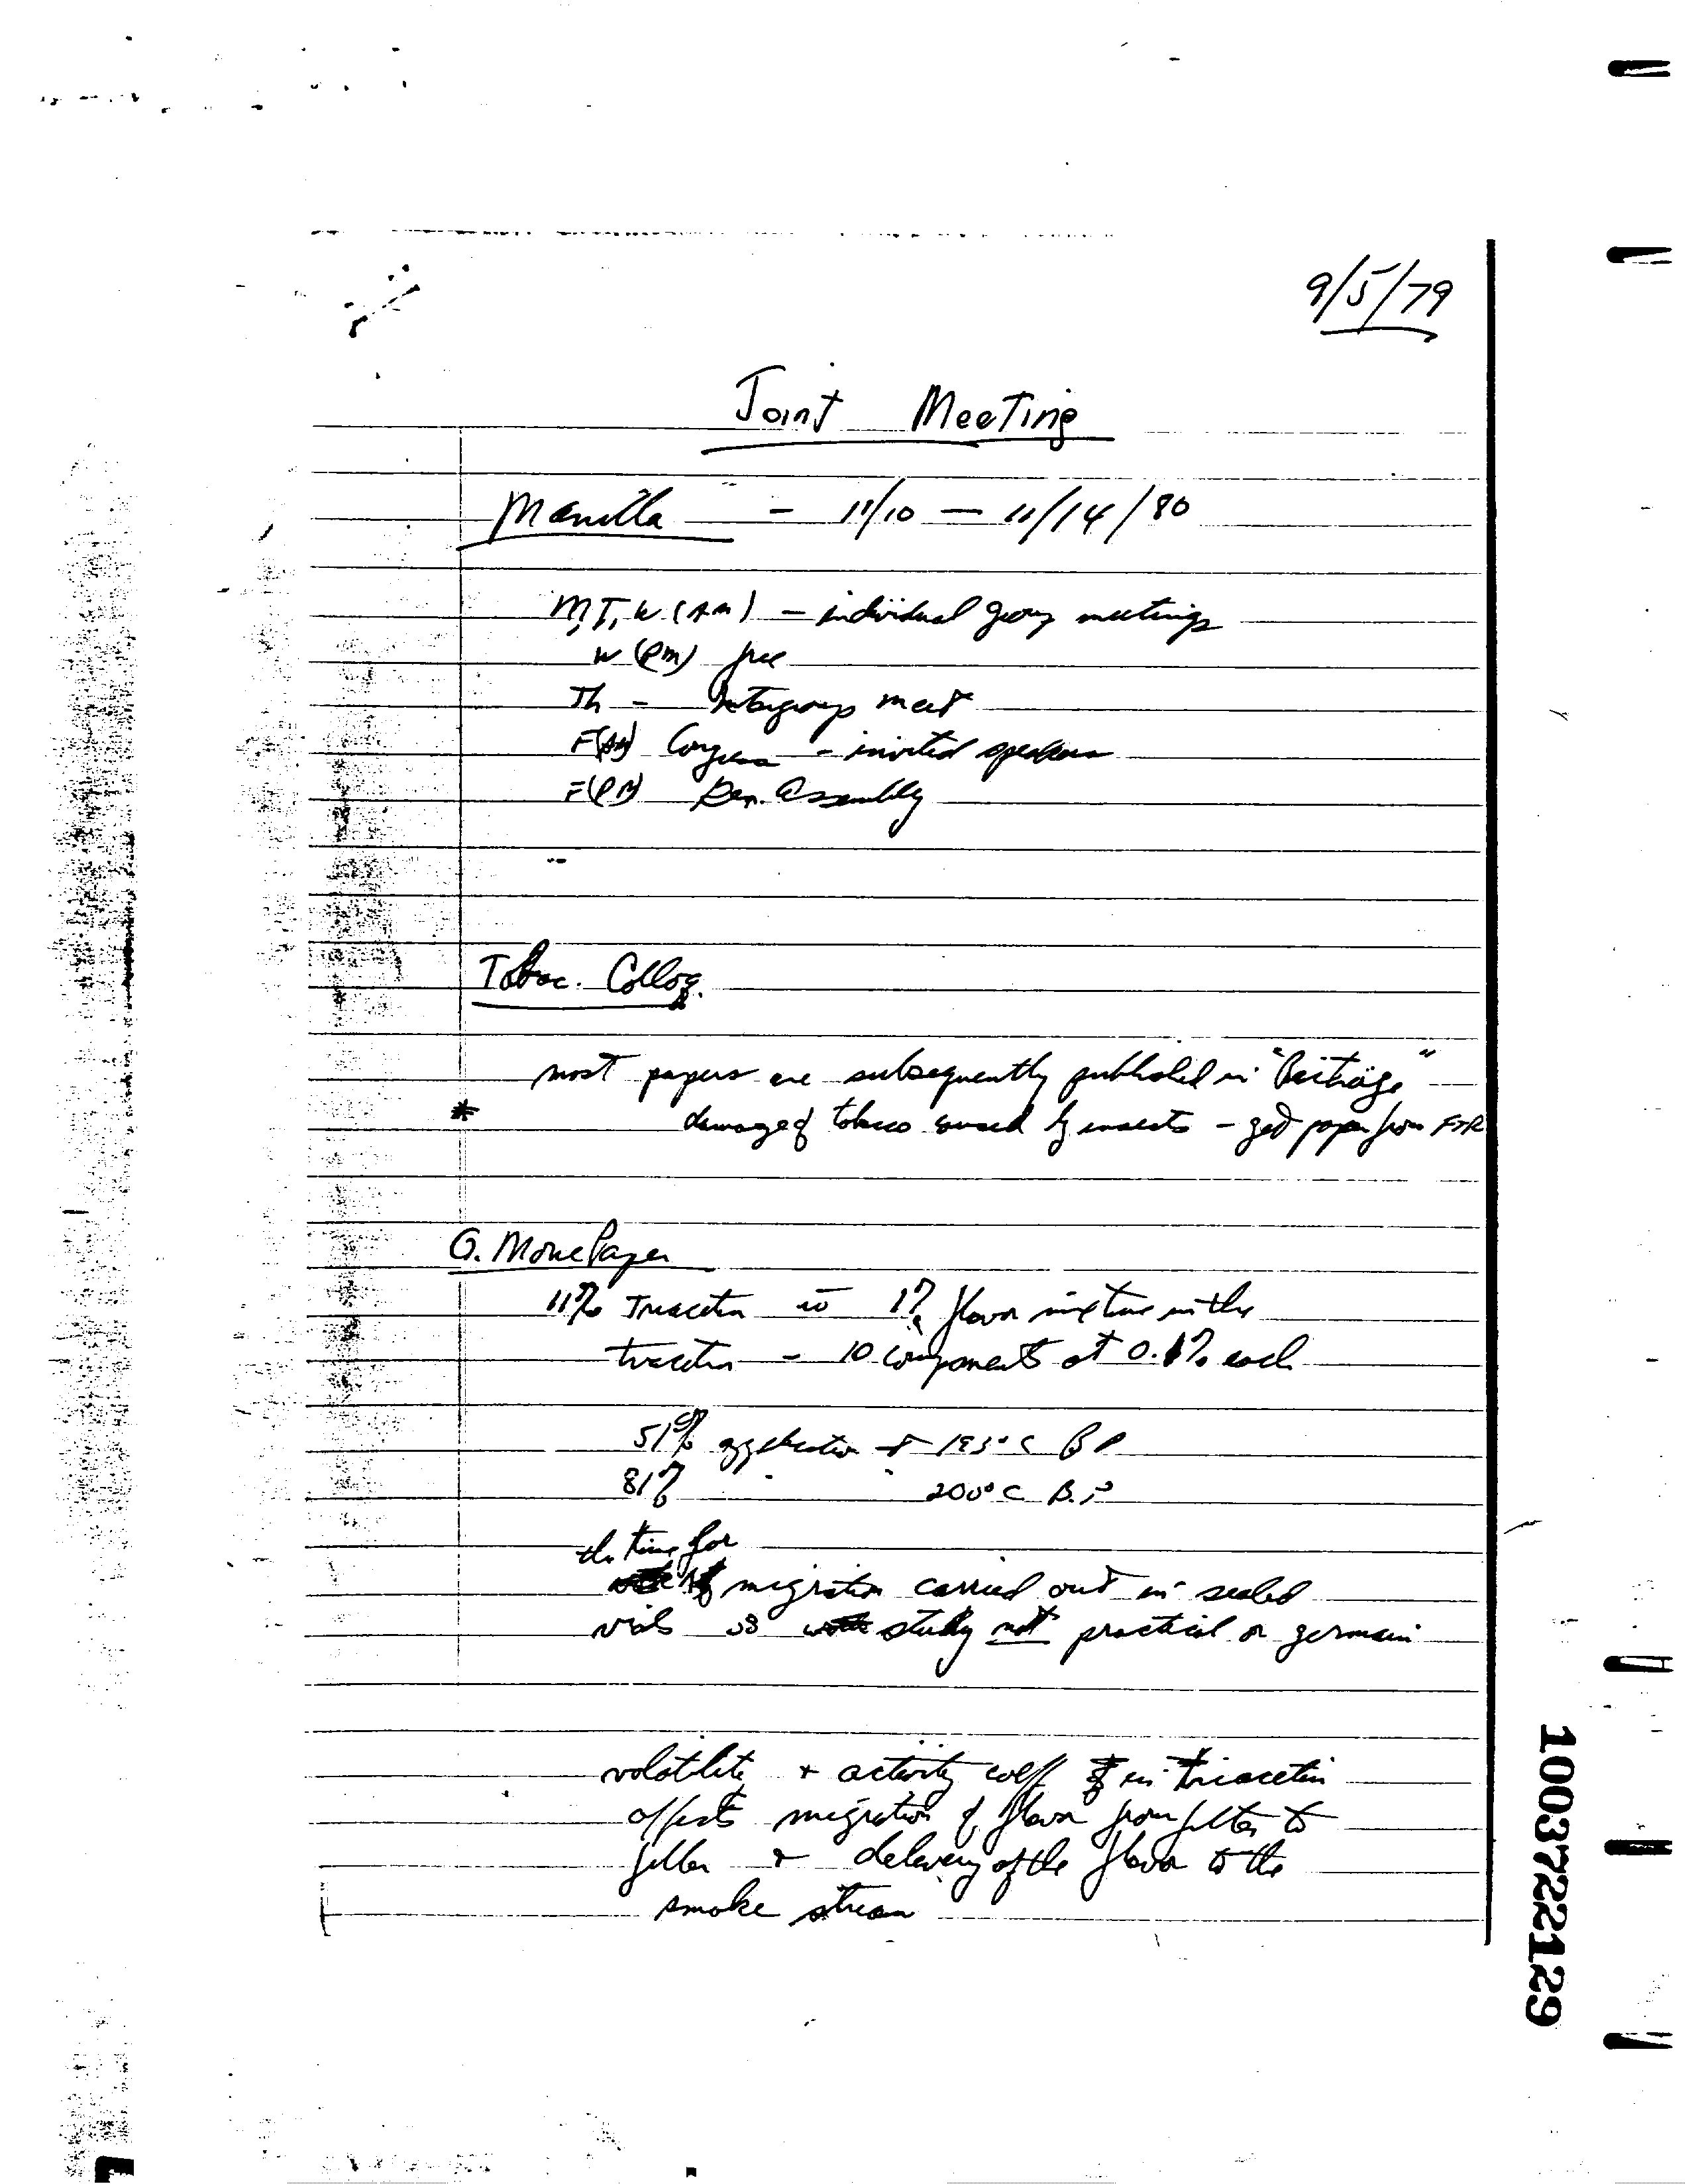 9/5/79
Joint Meeting
Manilla - 11/10 - 11/14/80
M, T, W (AM) - individual group meetings
W (PM) free
Th - Intergroup meet
F(AM) Congress - invited speakers
F(PM) Gen. Assembly
Tobac. Colloq.
most papers are subsequently published in "Beiträge"
* damage of tobacco caused by insects - get paper from FTR
G. Paper
11% Triacetin 1% flavor mixture in the
triacetin - 10 components at 0.1% each
51% application 195°C B P
81% " " 200°C B.P
the time for
migration carried out in sealed
vials study not practical or germain
volatility + activity coeff in Triacetin
affects migration of flavor from filter to
filler + delivery of the flavor to the
smoke stream
1003722129